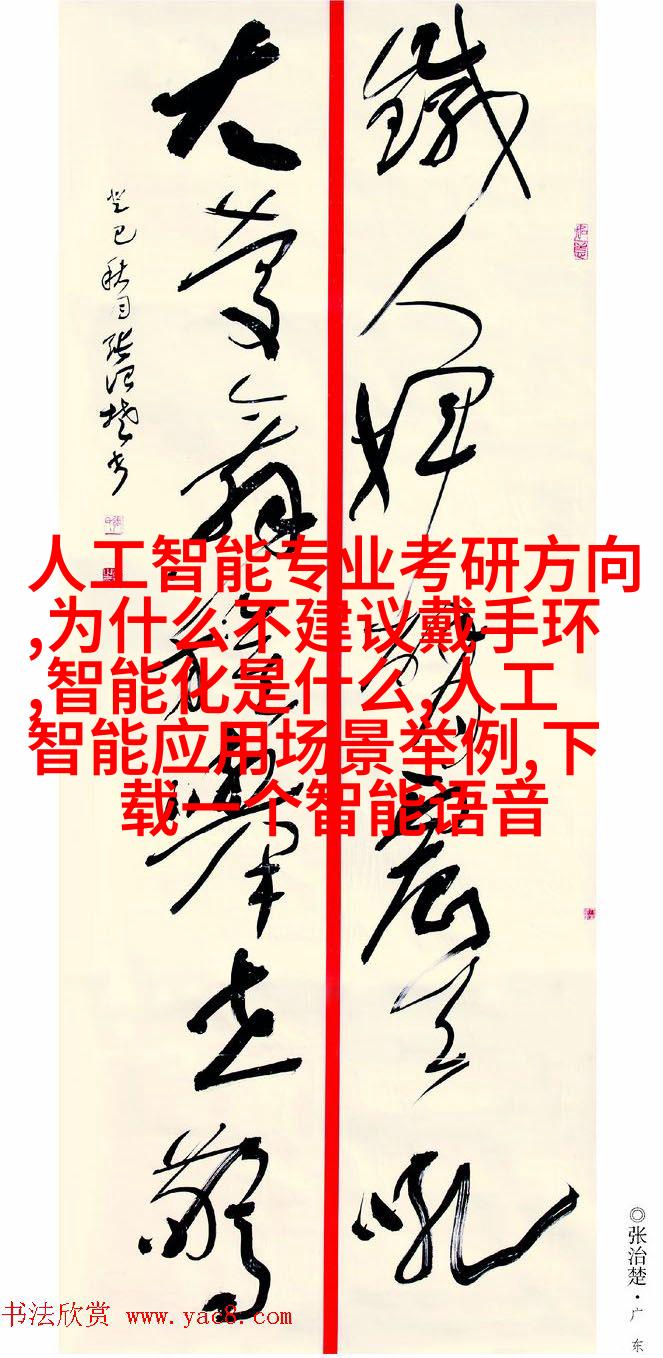 鐵人揮震天吼
大慶舉世驚
癸巳秋月張治楚书
人工智能专业考研方向
,为什么不建议戴手环
,智能化是什么,人工
智能应用场景举例,下
载一个智能语音
◎张治楚·广东
书法欣赏 www.yac8.com